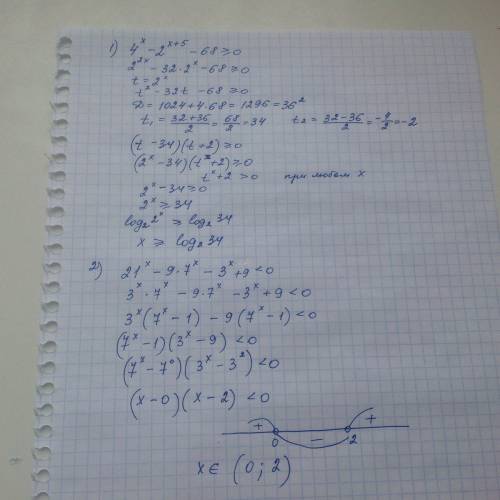 1) 4^x - 2^{x+5} - 68 ≥ 0
2^{2x} - 32·2^x - 68 ≥ 0
t = 2^x
t^2 - 32t - 68 ≥ 0
D = 1024 + 4·68 = 1296 = 36^2
t_1 = \frac{32+36}{2} = \frac{68}{2} = 34   t_2 = \frac{32-36}{2} = -\frac{4}{2} = -2
(t - 34)(t + 2) ≥ 0
(2^x - 34)(t^x + 2) ≥ 0
t^x + 2 > 0   при любом x
2^x - 34 ≥ 0
2^x ≥ 34
log_2 2^x ≥ log_2 34
x ≥ log_2 34
2) 21^x - 9·7^x - 3^x + 9 < 0
3^x · 7^x - 9·7^x - 3^x + 9 < 0
3^x (7^x - 1) - 9 (7^x - 1) < 0
(7^x - 1)(3^x - 9) < 0
(7^x - 7^0)(3^x - 3^2) < 0
(x - 0)(x - 2) < 0
+ - +
0 2
x ∈ (0; 2)